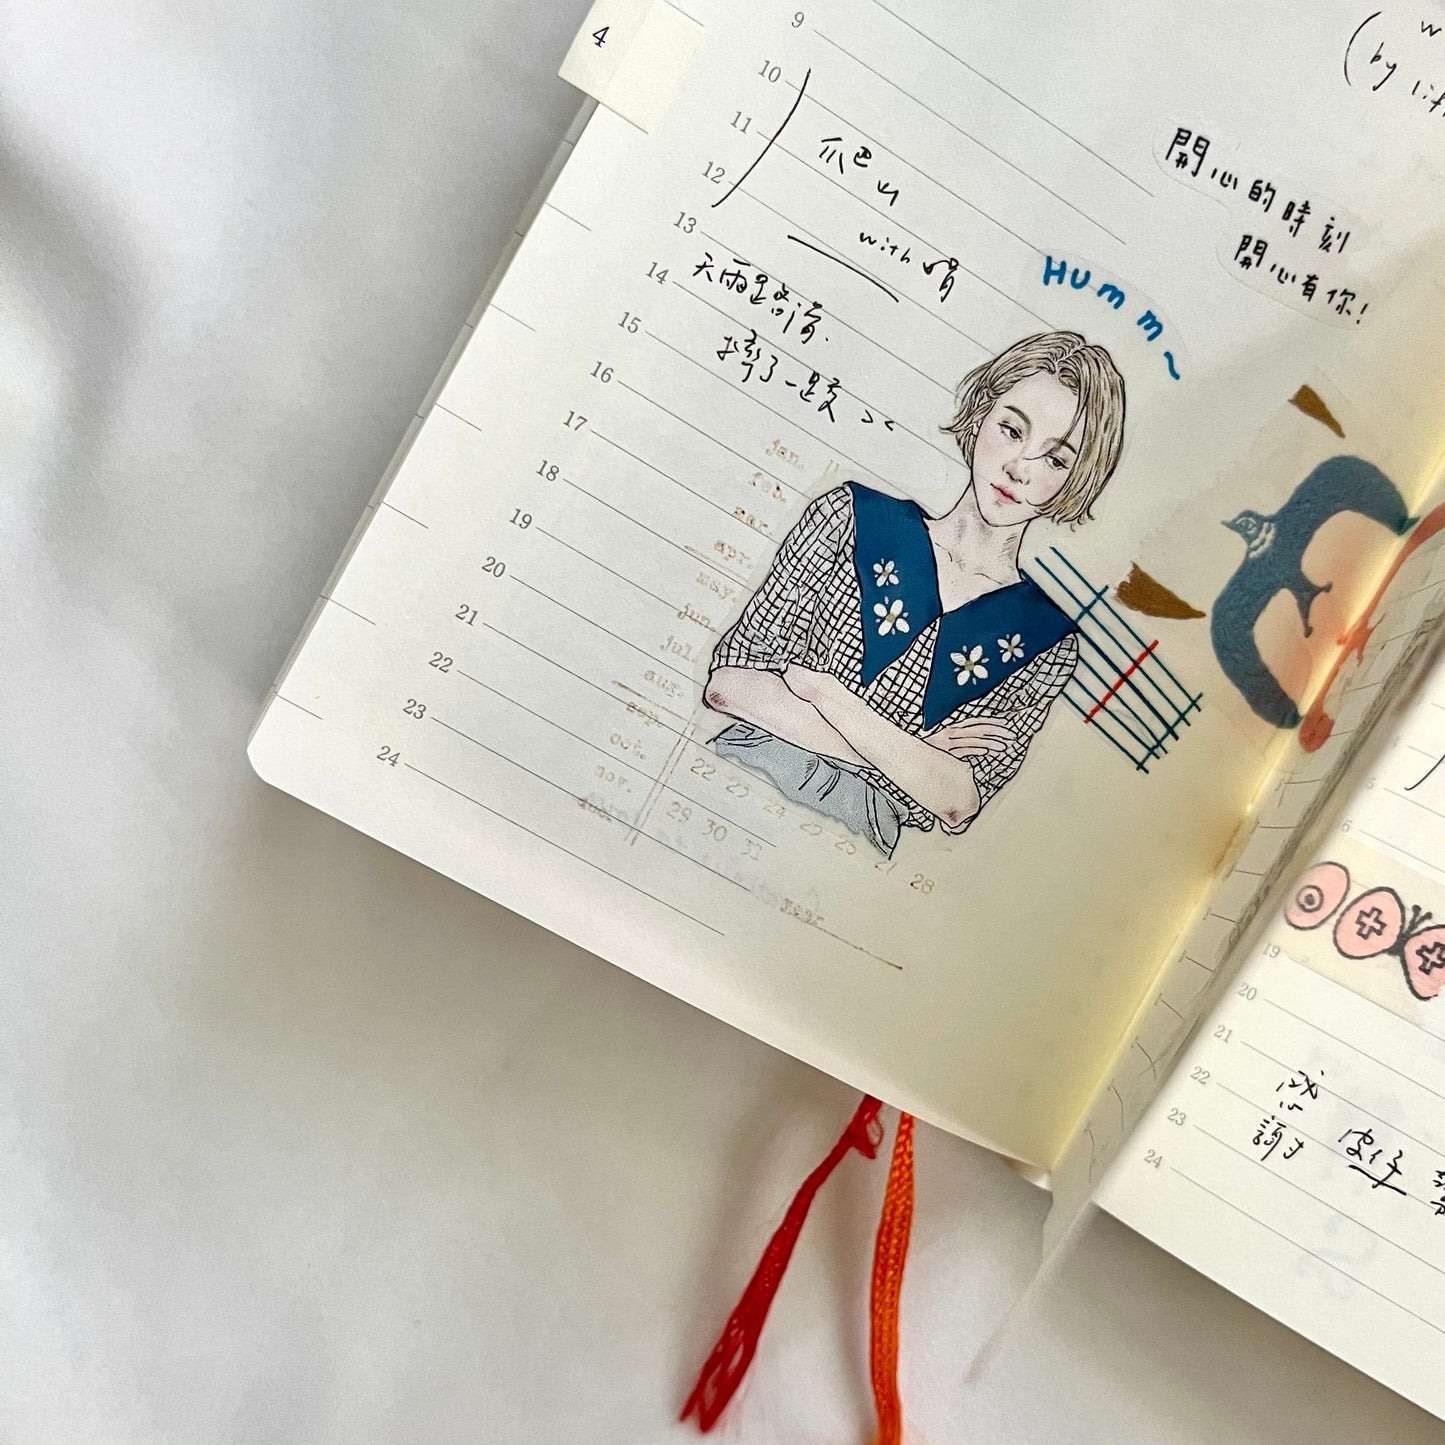 4
9
10
11
12
13
14
15
16
17
18
19
20
21
22
23
24
爬山
with
天雨路滑.
摔了一跤 ><
HUmm~
開心的時刻
開心有你!
(by
jan.
feb.
mar.
apr.
may.
jun.
jul.
aug.
sep.
oct.
nov.
dec.
22 23 24 25 26 27 28
29 30 31
year
19
20
21
22
23
24
感
謝 皮仔